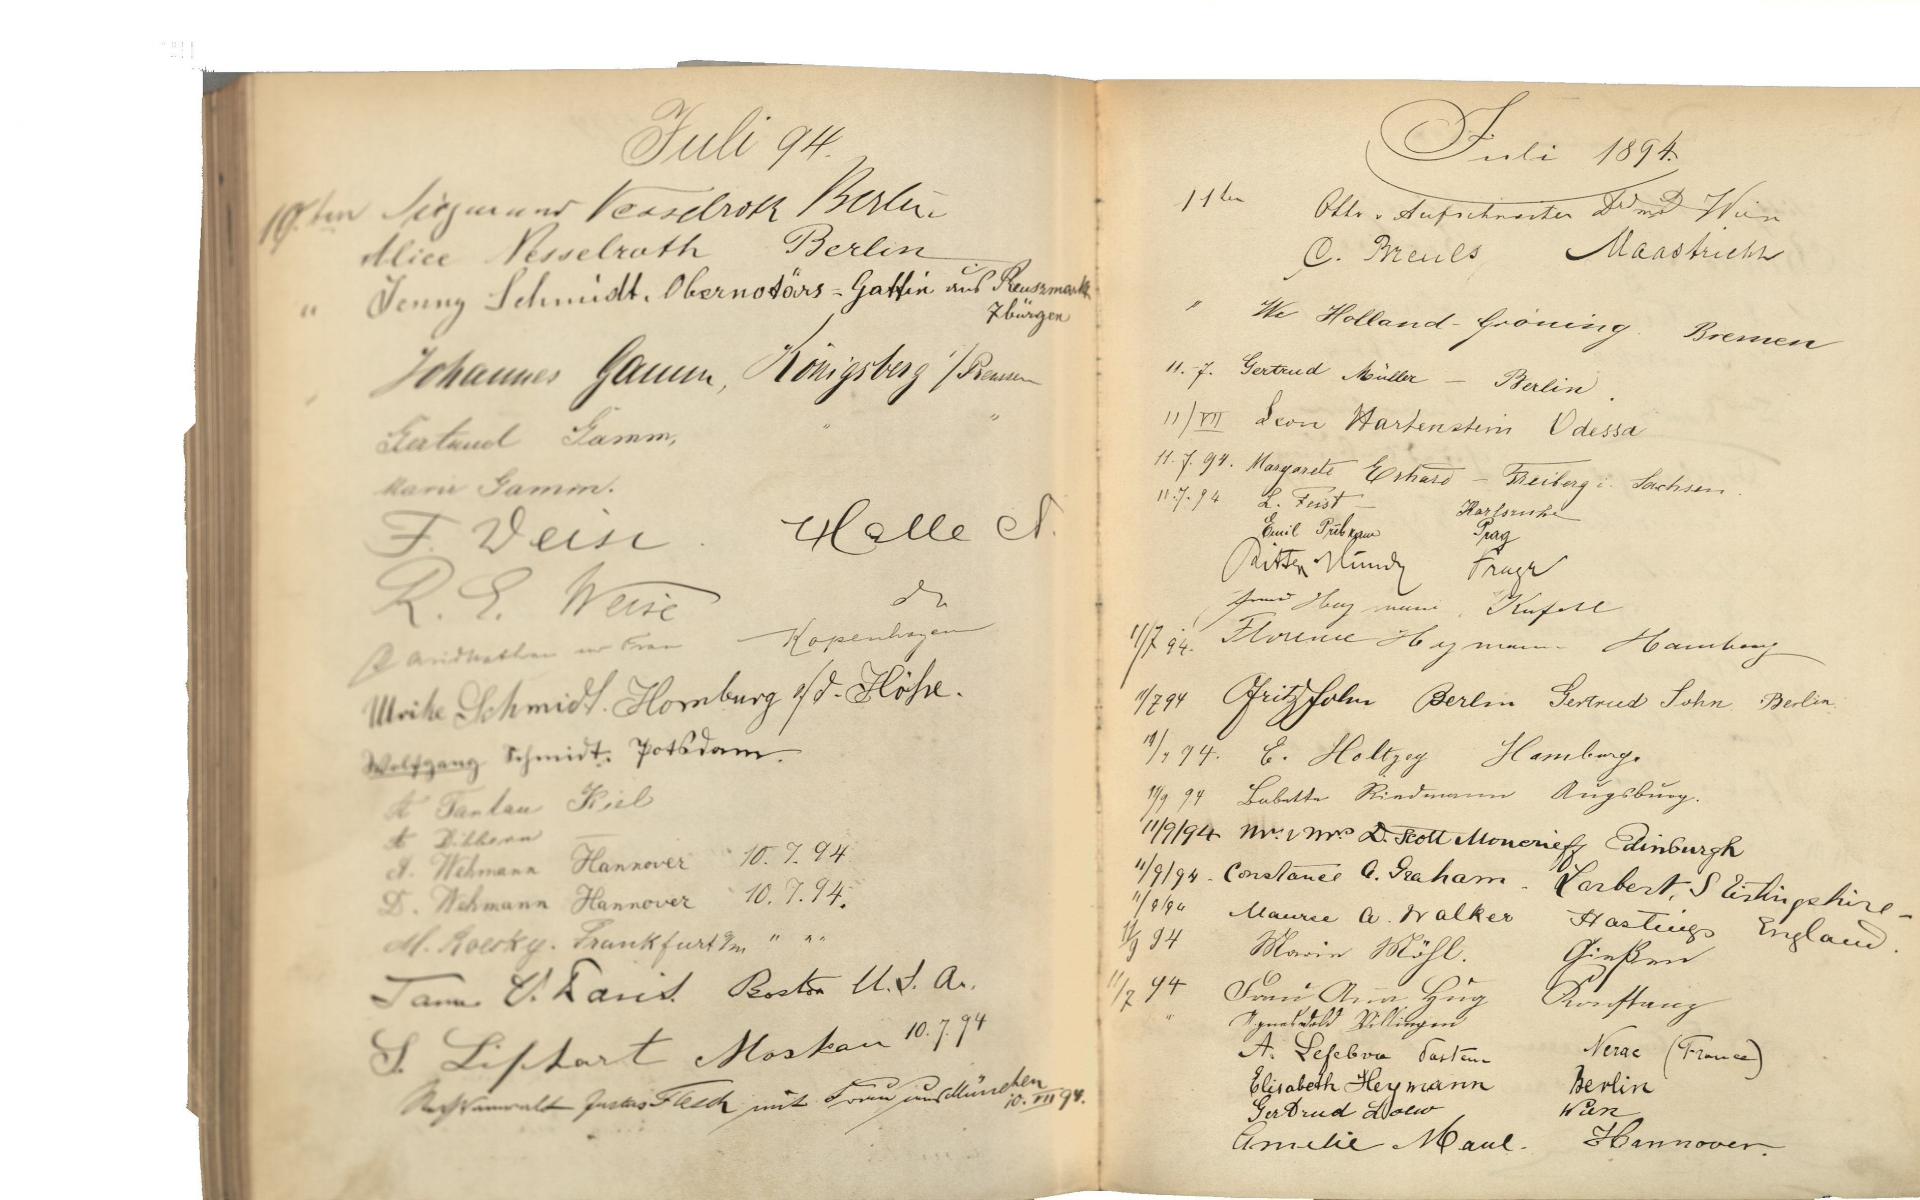 Juli 94.
10ten Siegmund Nesselroth Berlin
Alice Nesselroth Berlin
" Jenny Schmidt, Obernotärs-Gattin aus Reuszmarkt
7bürgen
Johannes Gamm, Königsberg i/Preussen
Gertrud Gamm, " "
Marie Gamm.
F. Weise. Halle
R. E. Weise do
und Frau Kopenhagen
Ulrike Schmidt. Homburg v/d. Höhe.
Wolfgang Schmidt. Potsdam.
A Tantau Kiel
A
A. Wehmann Hannover 10. 7. 94
D. Wehmann Hannover 10. 7. 94.
M. Frankfurt a/m " " "
Boston U. S. A.
S. Liphart Moskau 10. 7. 94
Rechtsanwalt Justus Flesch mit Frau aus München
10. VII 94.
Juli 1894.
11ten Otto v. Aufschnaiter Dr med Wien
C. Breuls Maastricht
" We Holland-Gröning. Bremen
11.-7. Gertrud Müller - Berlin.
11/VII Leon Hartenstein Odessa
11. 7. 94. Margarete Erhard - Freiberg i. Sachsen.
11. 7. 94 L. Feist - Karlsruhe
Emil Pribram Prag
Mündy
Heymann,
11/7 94. Florence Heymann Hamburg
11/7 94 Fritz Sohn Berlin Gertrud Sohn Berlin.
94. E. Holtzey Hamburg.
11/9 94 Babette Riedmann Augsburg.
11/9/94 Mr. & Mrs D. Scott Moncrieff Edinburgh
11/9/94. Constance A. Graham. Larbert, Stirlingshire -
11/9/94 Maurice A. Walker Hastings England.
11/9 94 Marie Möhl. Gießen
11/7 94 Frau Anna Hug Konstanz
" Villingen
A. Lefebvre Nerac (France)
Elisabeth Heymann Berlin
Gertrud Loew Wien
Amelie Maul. Hannover.